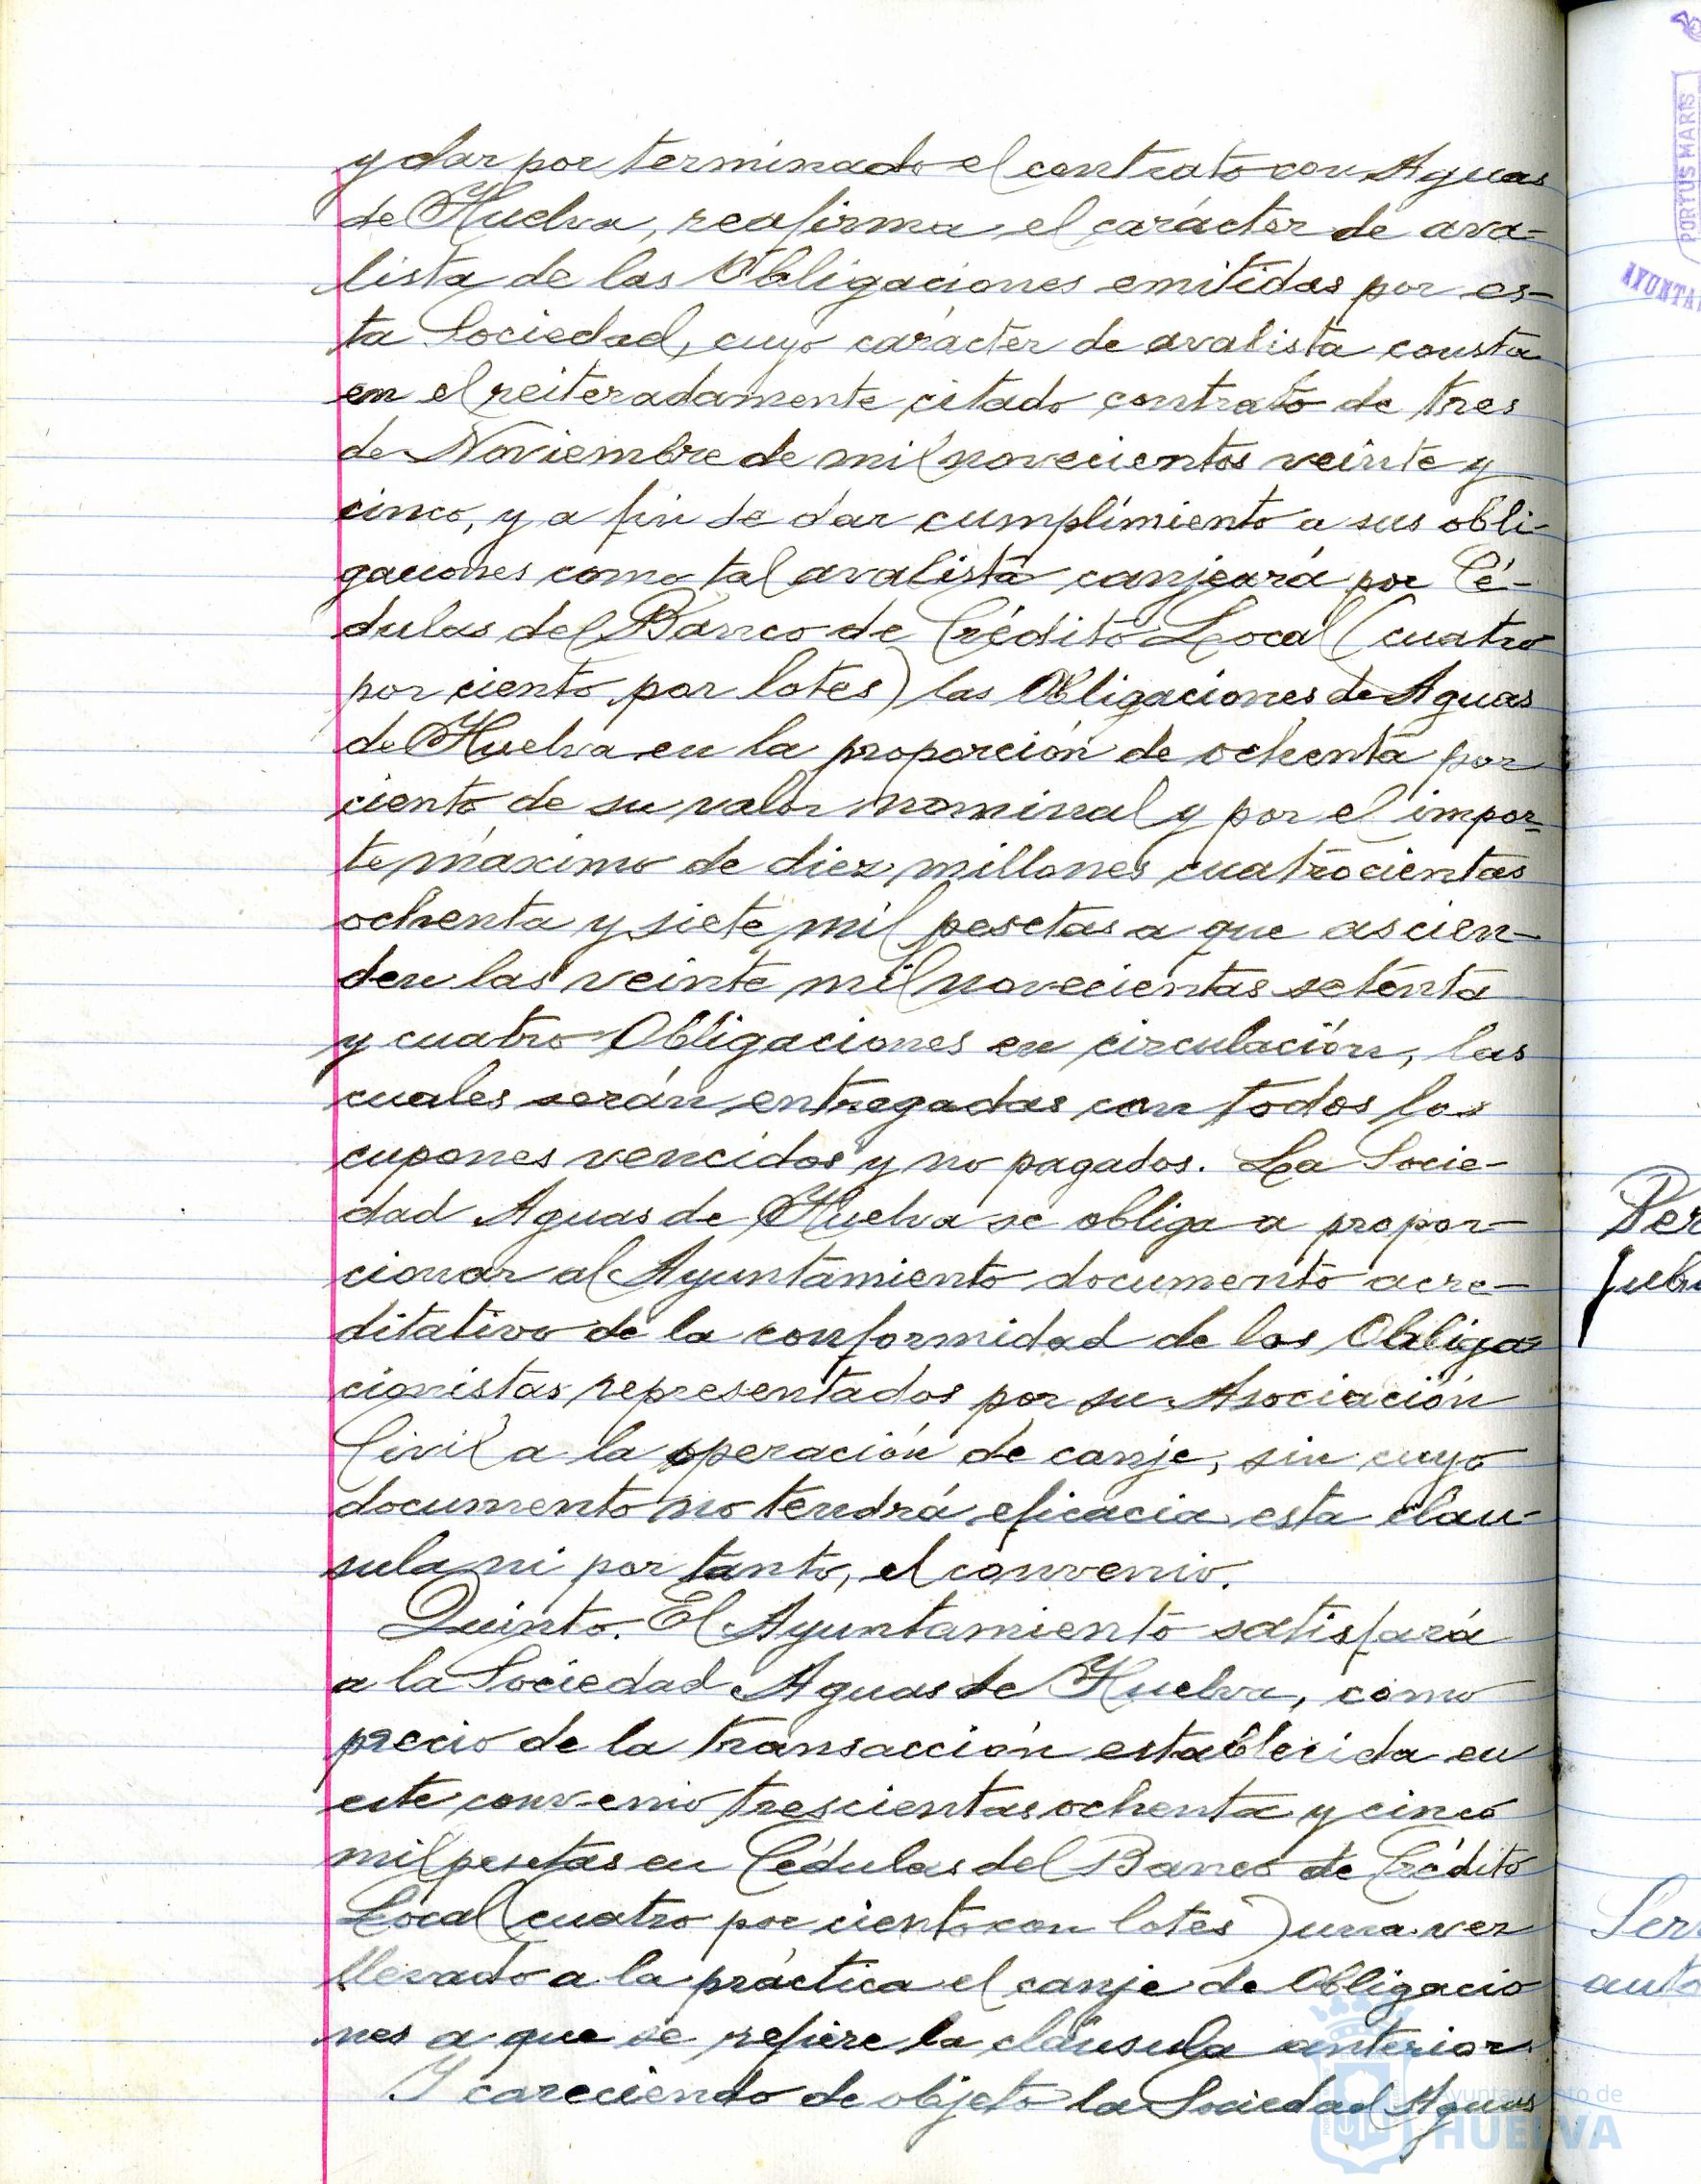 y dar por terminado el contrato con Aguas
de Huelva, reafirma el carácter de ava-
lista de las Obligaciones emitidas por es-
ta Sociedad, cuyo carácter de avalista consta
en el reiteradamente citado contrato de tres
de Noviembre de mil novecientos veinte y
cinco, y a fin de dar cumplimiento a sus obli-
gaciones como tal avalista canjeará por Cé-
dulas del Banco de Crédito Local (cuatro
por ciento por lotes) las Obligaciones de Aguas
de Huelva en la proporción de ochenta por
ciento de su valor nominal y por el impor-
te máximo de diez millones cuatrocientas
ochenta y siete mil pesetas a que ascien-
den las veinte mil novecientas setenta
y cuatro Obligaciones en circulación, las
cuales serán entregadas con todos los
cupones vencidos y no pagados. La Socie-
dad Aguas de Huelva se obliga a propor-
cionar al Ayuntamiento documento acre-
ditativo de la conformidad de los Obliga-
cionistas representados por su Asociación
Civil a la operación de canje, sin cuyo
documento no tendrá eficacia esta cláu-
sula ni por tanto, el convenio.
Quinto. El Ayuntamiento satisfará
a la Sociedad Aguas de Huelva, como
precio de la transacción establecida en
este convenio trescientas ochenta y cinco
mil pesetas en Cédulas del Banco de Crédito
Local (cuatro por ciento con lotes) una vez
llevado a la práctica el canje de Obligacio
nes a que se refiere la cláusula anterior.
Y careciendo de objeto la Sociedad Aguas
PORTUS MARIS
AYUNTA
Per
jubi
Serv
auto
Ayuntamiento de
HUELVA